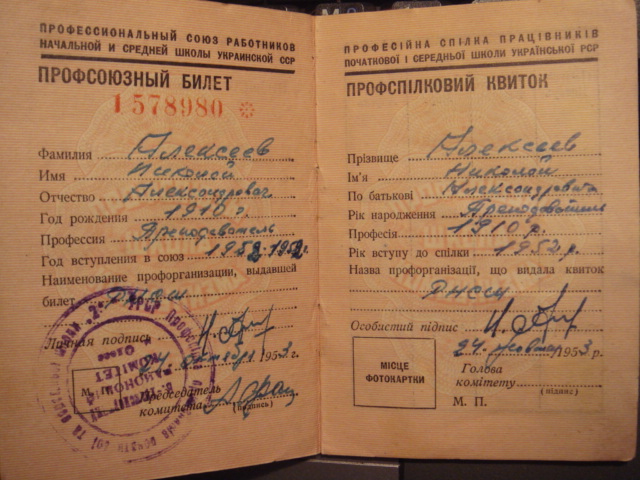 ПРОФЕССИОНАЛЬНЫЙ СОЮЗ РАБОТНИКОВ
НАЧАЛЬНОЙ И СРЕДНЕЙ ШКОЛЫ УКРАИНСКОЙ ССР
ПРОФСОЮЗНЫЙ БИЛЕТ
1578980
Фамилия Алексеев
Имя Николай
Отчество Александрович
Год рождения 1910 г.
Профессия Преподаватель
Год вступления в союз 1952
Наименование профорганизации, выдавшей
билет
Личная подпись
24 1953 г.
М. П. Председатель
комитета
(подпись)
ПРОФЕСІЙНА СПІЛКА ПРАЦІВНИКІВ
ПОЧАТКОВОЇ І СЕРЕДНЬОЇ ШКОЛИ УКРАЇНСЬКОЇ РСР
ПРОФСПІЛКОВИЙ КВИТОК
Прізвище Алексеев
Ім'я Николай
По батькові Александрович
Рік народження Преподаватель
Професія 1910 р.
Рік вступу до спілки 1952 р.
Назва профорганізації, що видала квиток
Особистий підпис
24 1953 г.
МІСЦЕ
ФОТОКАРТКИ
Голова
комітету
(підпис)
М. П.